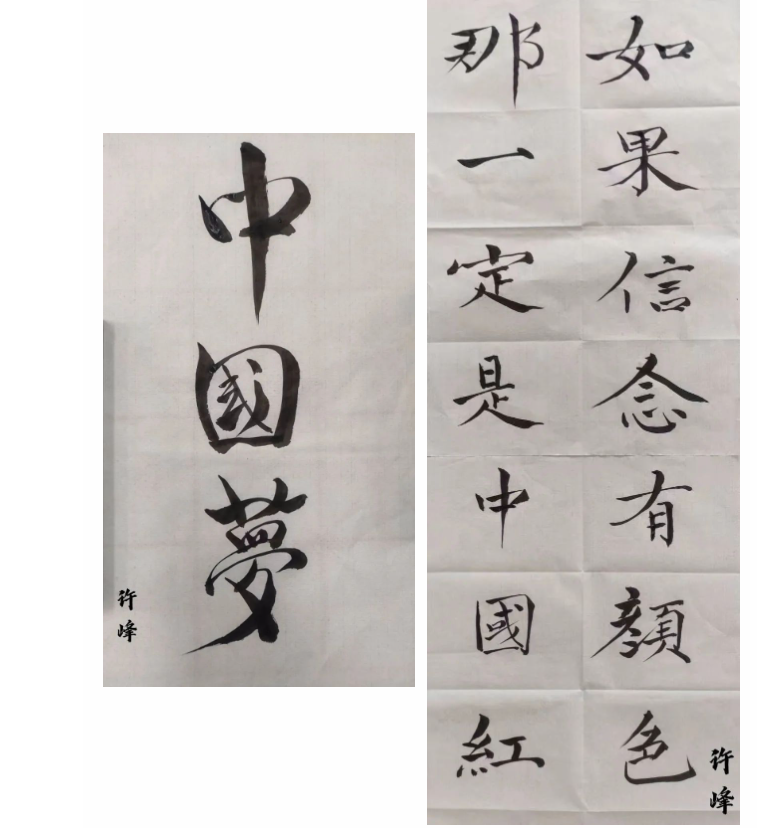 中國夢
许峰
如果信念有顔色
那一定是中國紅
许峰